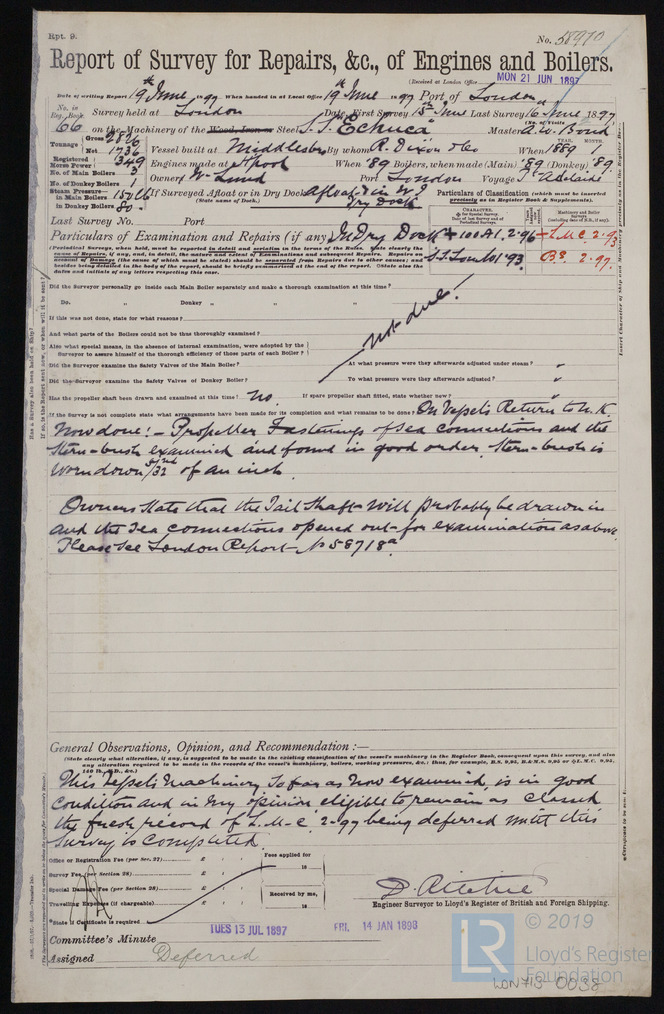 Rpt. 9.
No. 58970
Report of Survey for Repairs, &c., of Engines and Boilers.
(Received at London Office MON 21 JUN 1897
Date of writing Report 19th June 1897 When handed in at Local Office 19th June 1897 Port of London
No. in Reg. Book Survey held at London Date, First Survey 15th June Last Survey 16th June 1897
(No. of Visits
66 on the Machinery of the Wood, Iron or Steel S.S. Echuca Master A. W. Bond
Tonnage Gross 2826 Net 1736
Vessel built at Middlesbro By whom R. Dixon & Co When 1889 1
YEAR. MONTH.
Registered Horse Power 349
Engines made at Hpool When '89 Boilers, when made (Main) '89 (Donkey) '89
No. of Main Boilers 3
No. of Donkey Boilers 1
Owners W. Lund Port London Voyage Adelaide
Steam Pressure in Main Boilers 150 lb
in Donkey Boilers 80
If Surveyed Afloat or in Dry Dock Afloat & in W.I. Dry Dock
(State name of Dock.)
Particulars of Classification (which must be inserted precisely as in Register Book & Supplements).
Last Survey No. Port
CHARACTER.
Machinery and Boiler Surveys
Particulars of Examination and Repairs (if any) In Dry Dock
+100A1. 2.96
S.S. Lon No1 '93
+L.M.C. 2.93
B.S. 2.97.
(Periodical Surveys, when held, must be reported in detail and seriatim in the terms of the Rules. State clearly the cause of Repairs, if any, and, in detail, the nature and extent of Examinations and subsequent Repairs. Repairs on account of Damage (the cause of which must be stated) should be separated from Repairs due to other causes; and besides being detailed in the body of the report, should be briefly summarised at the end of the report. (State also the dates and initials of any letters respecting this case.
Did the Surveyor personally go inside each Main Boiler separately and make a thorough examination at this time?
Do. " Donkey " " "
If this was not done, state for what reasons?
And what parts of the Boilers could not be thus thoroughly examined?
Also what special means, in the absence of internal examination, were adopted by the Surveyor to assure himself of the thorough efficiency of those parts of each Boiler?
not due!
Did the Surveyor examine the Safety Valves of the Main Boiler? At what pressure were they afterwards adjusted under steam? "
Did the Surveyor examine the Safety Valves of Donkey Boiler? To what pressure were they afterwards adjusted? "
Has the propeller shaft been drawn and examined at this time? No. If spare propeller shaft fitted, state whether new? "
If the Survey is not complete state what arrangements have been made for its completion and what remains to be done: On Vessel's Return to U.K.
Now done:- Propeller Fastenings of sea connections and the
stern-bush examined and found in good order. Stern-bush is
worn down 3/32 of an inch.
Owners state that the Tail Shaft will probably be drawn in
and the sea connections opened out for examination as above.
Please see London Report No 58718a
General Observations, Opinion, and Recommendation :—
(State clearly what alteration, if any, is suggested to be made in the existing classification of the vessel's machinery in the Register Book, consequent upon this survey, and also any alteration required to be made in the records of the vessel's machinery, boilers, working pressures, &c.; thus, for example, B.S. 9,95, B.&M.S. 9,95, or L.M.C. 9,95, 140 lb., F.D., &c.)
This Vessel's Machinery, so far as now examined, is in good
condition and in my opinion eligible to remain as classed,
the fresh record of L.M.C. 2.97 being deferred until this
survey is completed.
Office or Registration Fee (per Sec. 27) £ : :
Survey Fee (per Section 28) £ : :
Special Damage Fee (per Section 28) £ : :
Travelling Expenses (if chargeable) £ : :
Fees applied for 18
Received by me, 18
*State if Certificate is required
D. Ritchie
Engineer Surveyor to Lloyd's Register of British and Foreign Shipping.
TUES 13 JUL 1897 FRI. 14 JAN 1898
Committee's Minute
Assigned Deferred
© 2019
LR
Lloyd's Register
Foundation
LON 713-0038